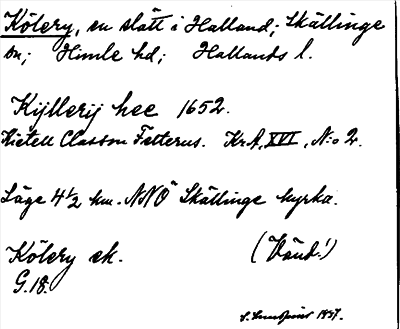 Kölery, en slätt i Halland; Skällinge
sn; Himle hd; Hallands l.
Kyllerij hee 1652.
Kietell Classon Felterus. KrA, XVI, N:o 2.
Läge 4 1/2 km. NNÖ Skällinge kyrka.
Kölery ek. (Vänd!)
G.18.
1937.